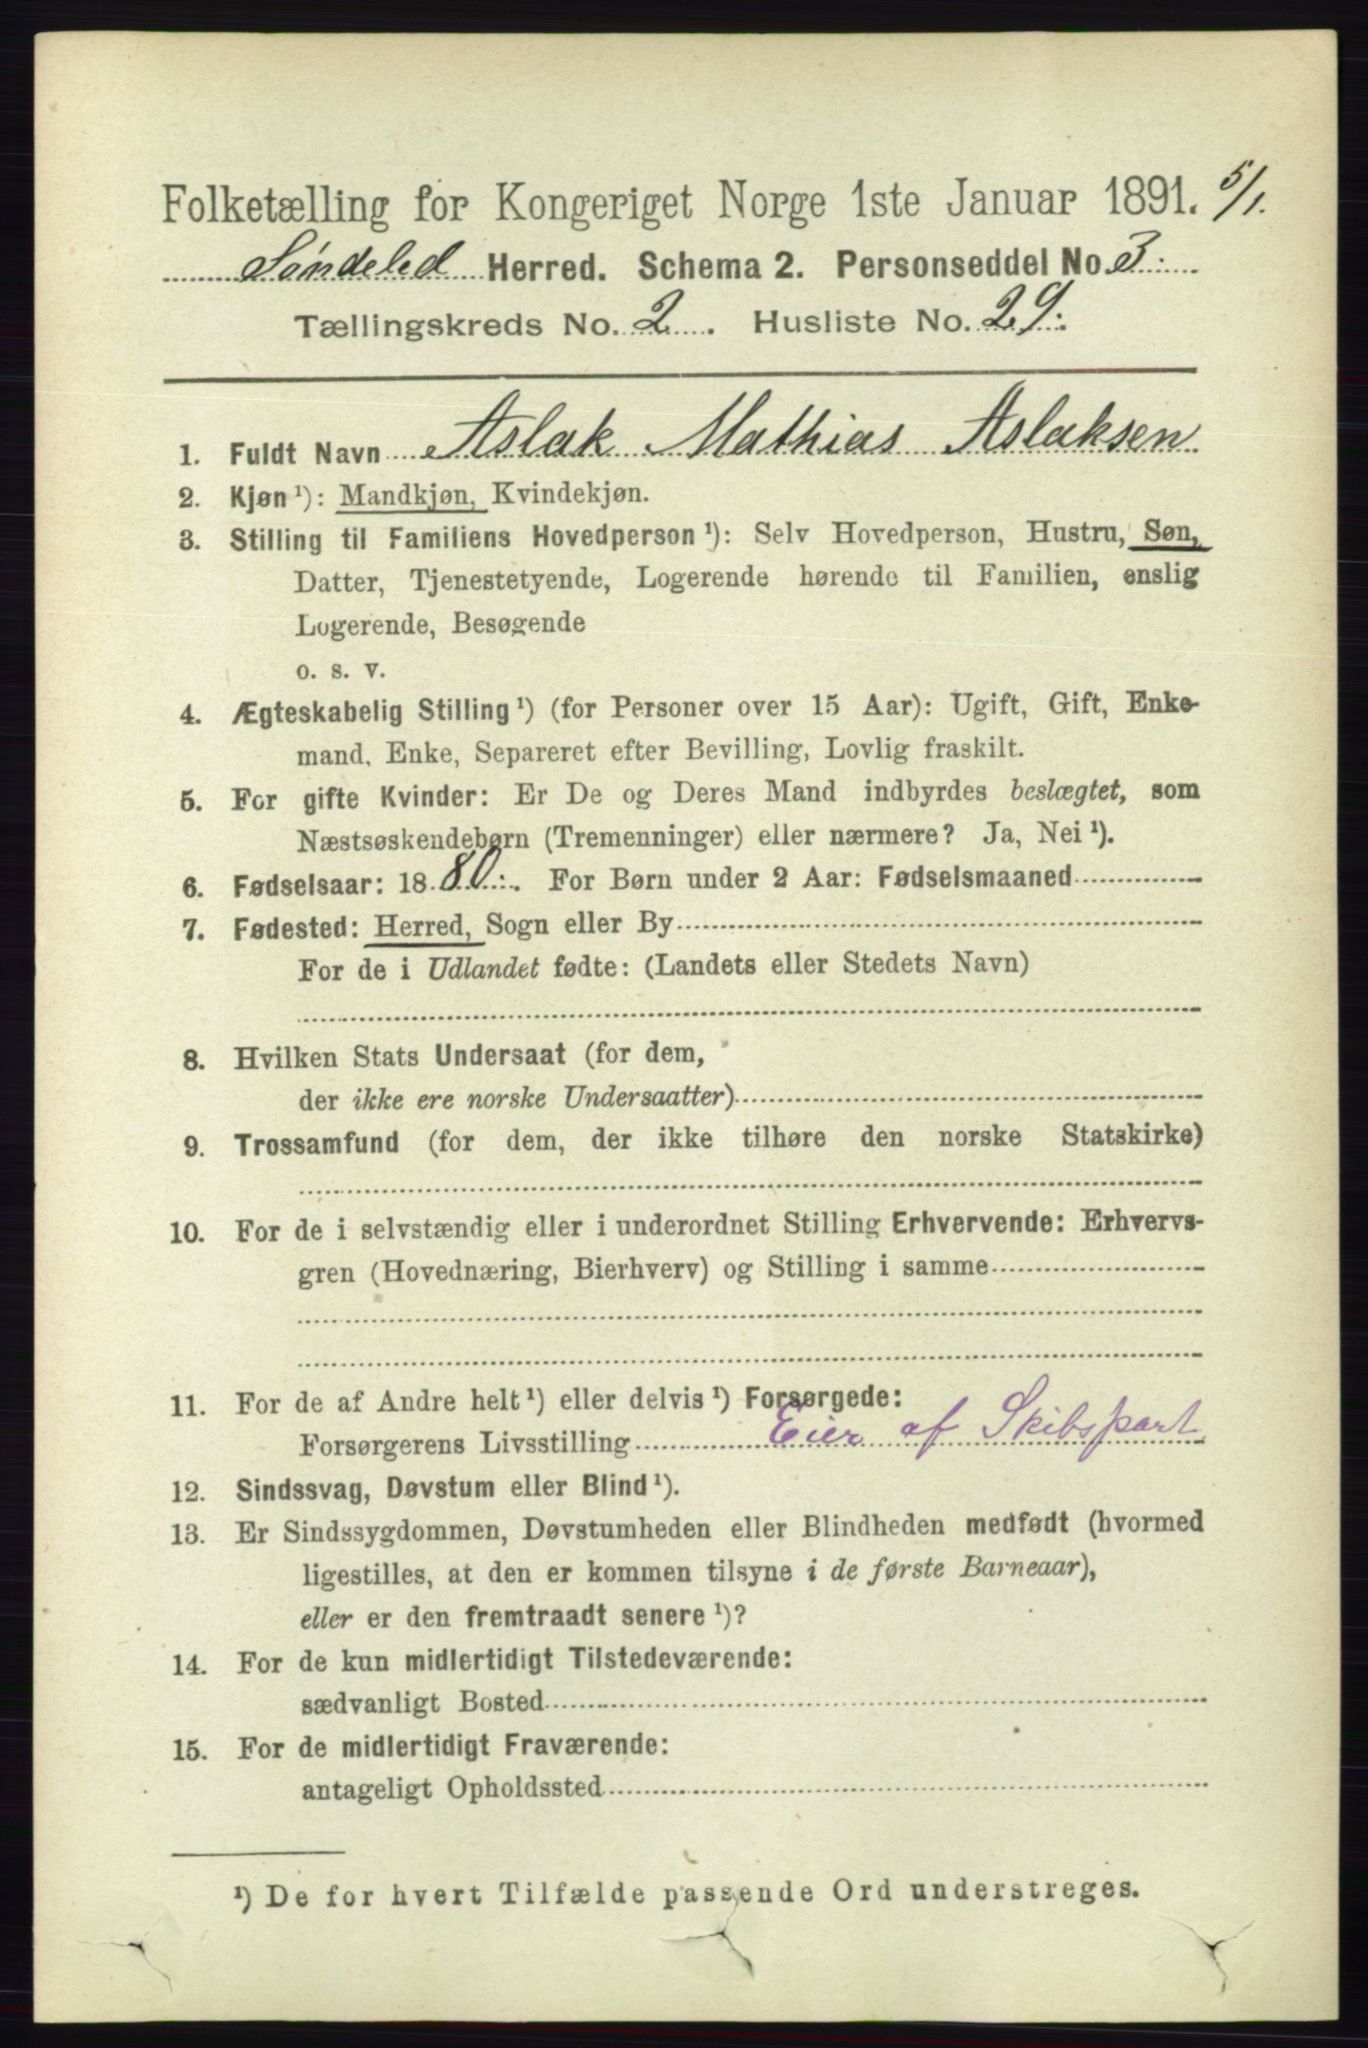 Folketælling for Kongeriget Norge 1ste Januar 1891. 5/1.
Søndeled Herred. Schema 2. Personseddel No. 3.
Tællingskreds No. 2. Husliste No. 29.
1. Fuldt Navn Aslak Mathias Aslaksen
2. Kjøn ¹): Mandkjøn, Kvindekjøn.
3. Stilling til Familiens Hovedperson ¹): Selv Hovedperson, Hustru, Søn,
Datter, Tjenestetyende, Logerende hørende til Familien, enslig
Logerende, Besøgende
o. s. v.
4. Ægteskabelig Stilling ¹) (for Personer over 15 Aar): Ugift, Gift, Enke-
mand, Enke, Separeret efter Bevilling, Lovlig fraskilt.
5. For gifte Kvinder: Er De og Deres Mand indbyrdes beslægtet, som
Næstsøskendebørn (Tremenninger) eller nærmere? Ja, Nei ¹).
6. Fødselsaar: 1880. For Børn under 2 Aar: Fødselsmaaned
7. Fødested: Herred, Sogn eller By
For de i Udlandet fødte: (Landets eller Stedets Navn)
8. Hvilken Stats Undersaat (for dem,
der ikke ere norske Undersaatter)
9. Trossamfund (for dem, der ikke tilhøre den norske Statskirke)
10. For de i selvstændig eller i underordnet Stilling Erhvervende: Erhvervs-
gren (Hovednæring, Bierhverv) og Stilling i samme
11. For de af Andre helt ¹) eller delvis ¹) Forsørgede:
Forsørgerens Livsstilling Eier af Skibspart
12. Sindssvag, Døvstum eller Blind ¹).
13. Er Sindssygdommen, Døvstumheden eller Blindheden medfødt (hvormed
ligestilles, at den er kommen tilsyne i de første Barneaar),
eller er den fremtraadt senere ¹)?
14. For de kun midlertidigt Tilstedeværende:
sædvanligt Bosted
15. For de midlertidigt Fraværende:
antageligt Opholdssted
¹) De for hvert Tilfælde passende Ord understreges.